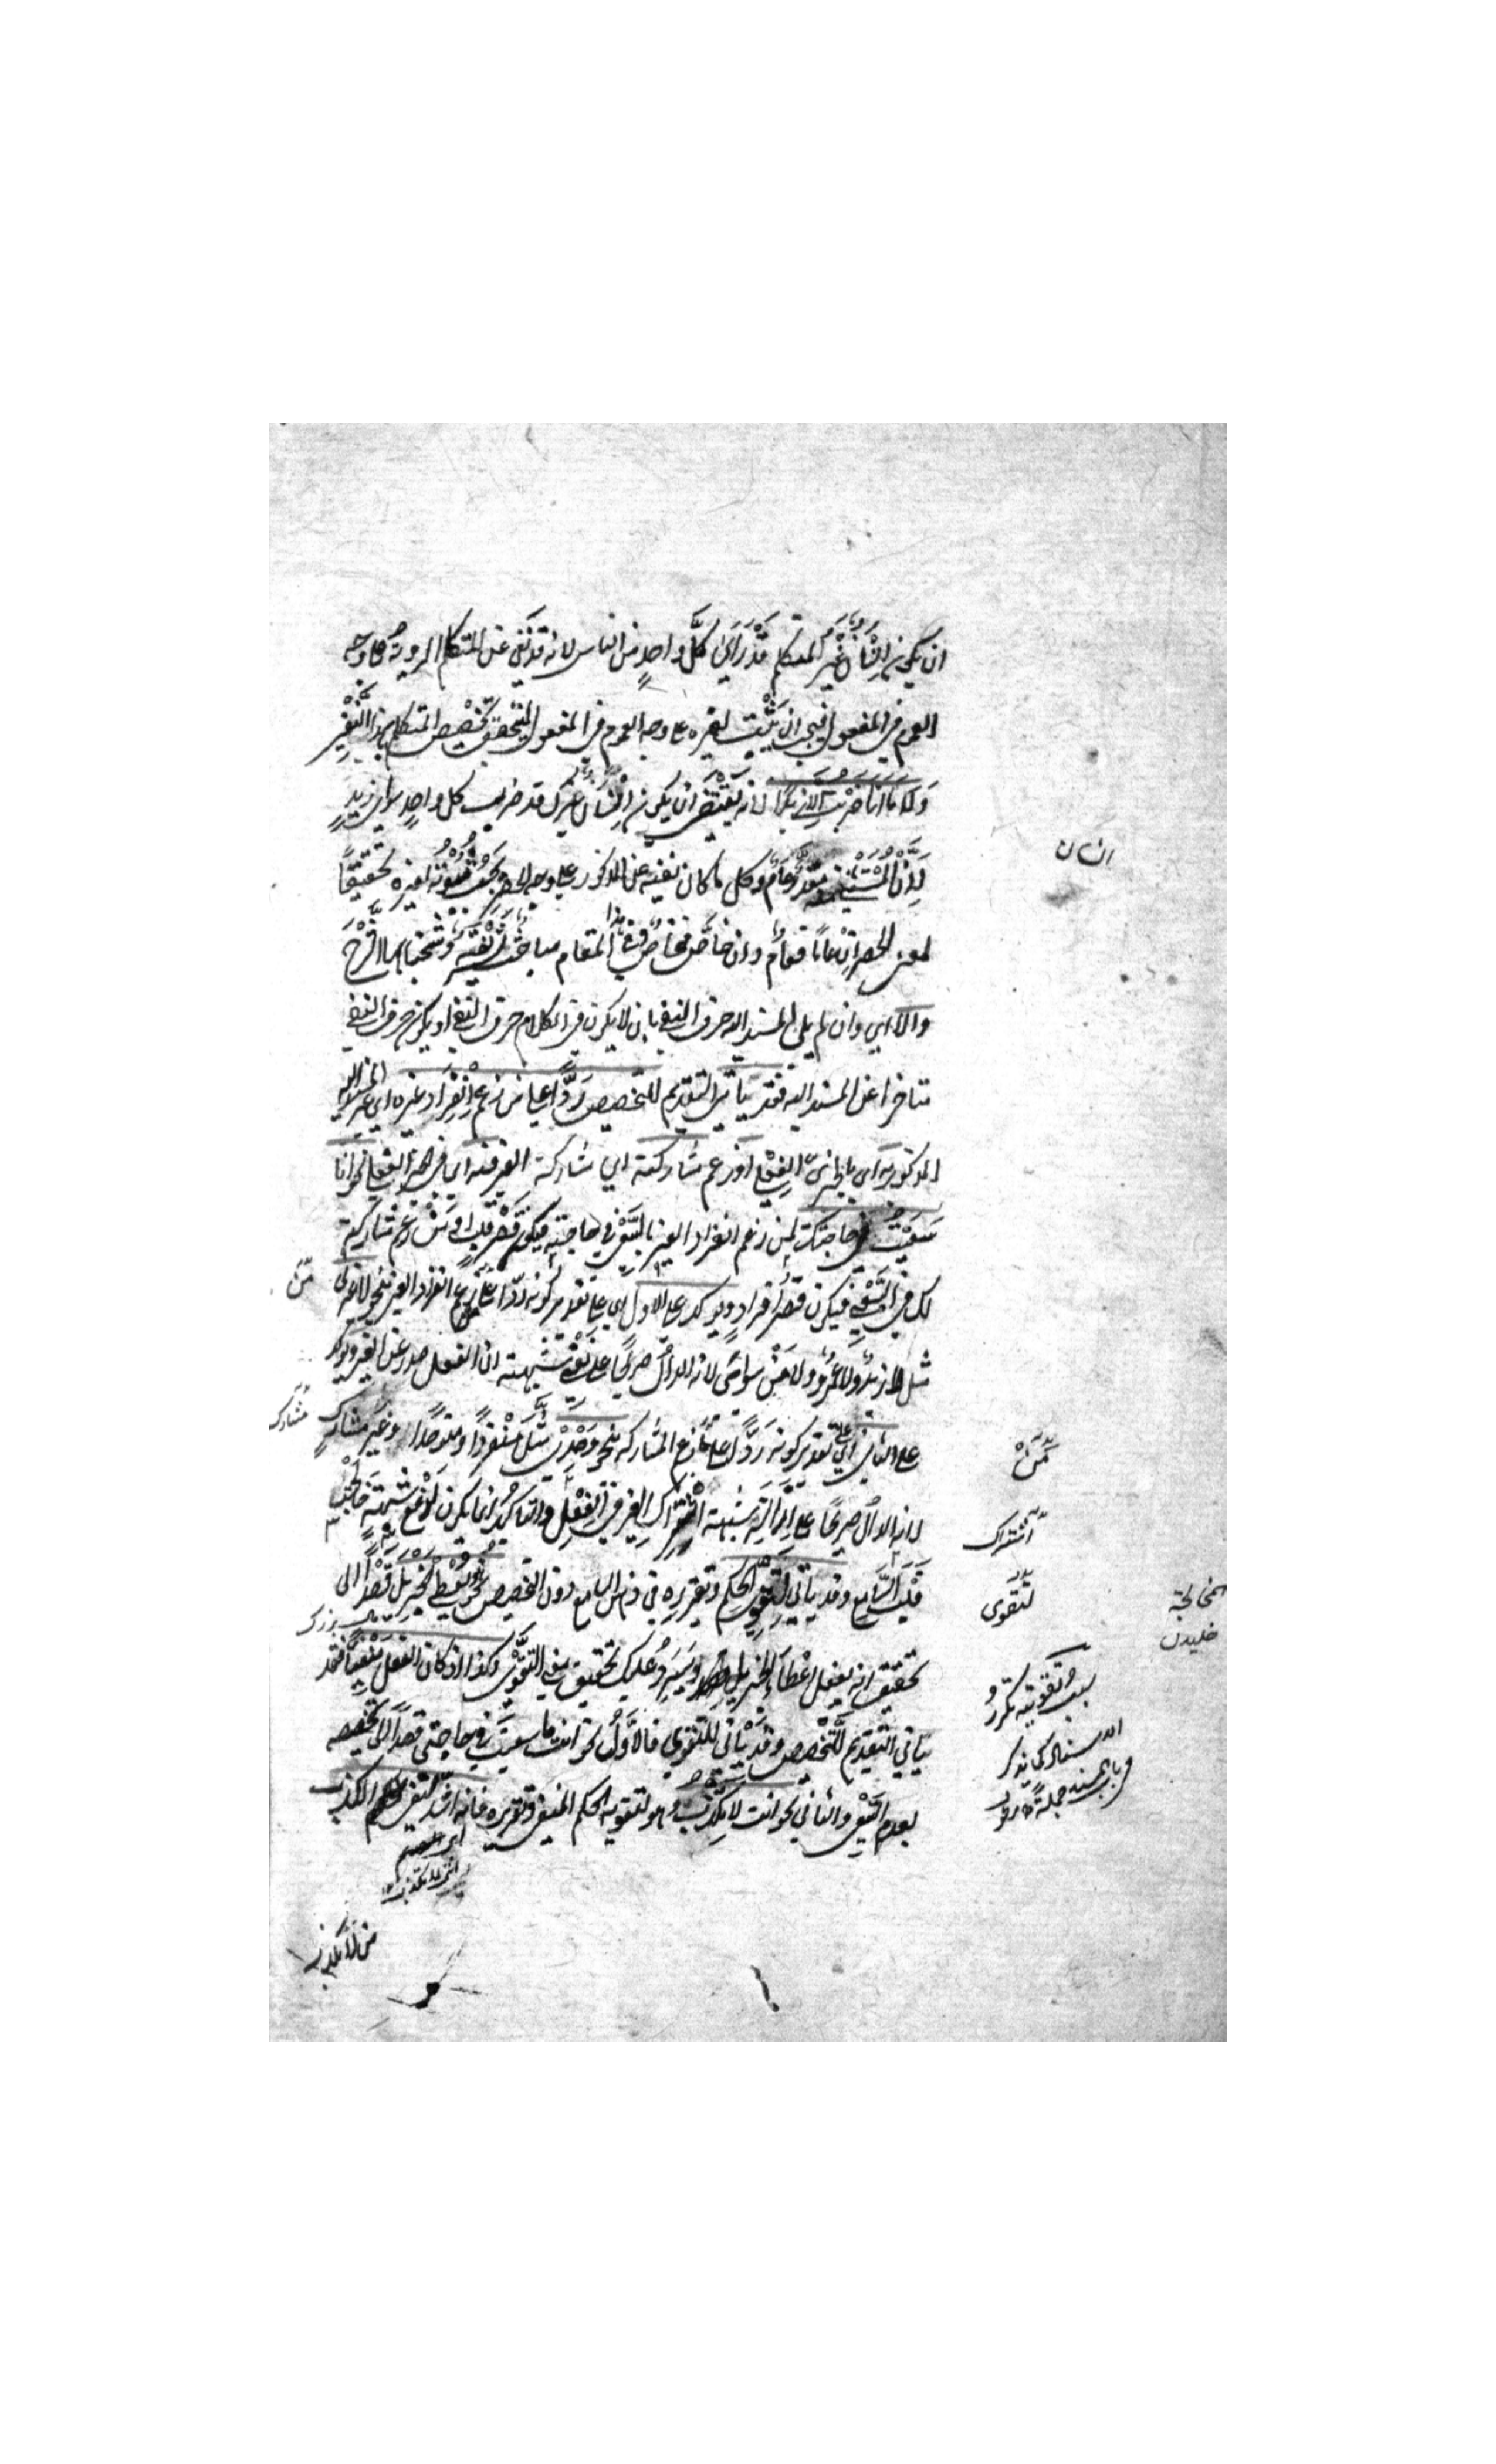 ان يكون اِنْسَانٌ غَيْرَ المتكلم قَدْ رَأَىٰ كلَّ واحدٍ من الناس لانه قد نفى عن المتكلم الرويةُ على وجه
العموم في المفعول فيجب ان يَثْبُتَ لغيره على وجه العموم في المفعول ليتحقق تخصيص المتكلم بهذا النَّفْيِ
وَلَا مَا اَنَا ضَرَبْتُ اِلَّا زيدًا لانه يَقْتَضِى ان يكون اِنْسَانٌ غيرك قد ضرب كل واحدٍ سوى زيدٍ
انسان
لِاَنَّ الْمُسْتَثْنَى منه مقدَّرٌ عَامٌّ وكل ما كان نفيته عن المذكور على وجه الحصر يَجِبُ ثُبُوْتُهُ لغيره تحقيقًا
لمعنى الحصر اِنْ عامًّا فعامٌّ وان خاصًّا فخاصٌّ وفى هذا المقام مباحثُ نَفِيْسَةٌ وَشَّحْنَا بها الشَّرْحَ
والا اى وان لم يلِ المسند اليه حرف النفى بان لا يكون فى الكلام حرف النفى او يكون حرف النفى
متاخرا عن المسند اليه فَقَدْ يَأْتِى التقديم للتخصيص رَدًّا على من زعم اِنْفِرَادَ غيره اى غير المسند اليه
المذكور به اى بالخبر الفِعْلِى اَوْ زعم مشاركته اى مشاركة الغير فيه اى فى الخبر الفعلى نحو انا
سَعَيْتُ فى حاجتك لمن زعم انفراد الغير بالسَّعْىِ فى حاجته فيكون قَصْرَ قلب او مَنْ زعم مشاركته
لك فى السَّعْىِ فيكون قصرَ افرادٍ ويؤكد على الاول اى على تقدير كونه ردّا على من زعم انفراد الغير بنحو لا غيرى
مَنْ
مثل لا زيدٌ ولا عمرٌو ولا مَنْ سواى لانه الدالّ صريحًا على نَفْىِ شبهته ان الفعل صدر عن الغير ويؤكد
على الثانى اى على تقدير كونه رَدًّا على من زعم المشاركة بنحو وَحْدِىْ مثل مُنْفَرِدًا ومتوحدًا وغَيْرَ مشاركٍ
مشارك
مَنْ
لانه الدالّ صريحًا على اِزَالَةِ شبهة اشْتِرَاكِ الغير فى الفِعْلِ والتاكيد انما يكون لدفع شبهته خالجت
اشتراك
قَلْبَ السَّامع وقد ياتى لِتَقَوِّى الحكم وتقريره فى ذهن السامع دون التخصيص نحو هو يُعْطِى الجَزِيْلَ قَصْدًا الى
لتقوى
تحقيق انه يفعل اعْطَاءَ الجزيل وسَيَرِدُ عليك تحقيق معنى التقوّى وكذا اذا كان الفعل مَنْفِيًّا فقد
سبب تقويته تكرر
الاسناد كما يذكر
فى باب المسند جملةً
ياتى التقديم للتَّخْصِيص وقد ياتى للتقوى فالاَوَّلُ نحو انت ما سعيتَ فى حاجتى قصدًا الى تخصيصه
بعدم السَّعْىِ والثانى نحو انت لا تَكْذِبُ وهو لتقوية الحكم المنفى وتقريره فانه اشد لنفى الكذب
من لا تكذب